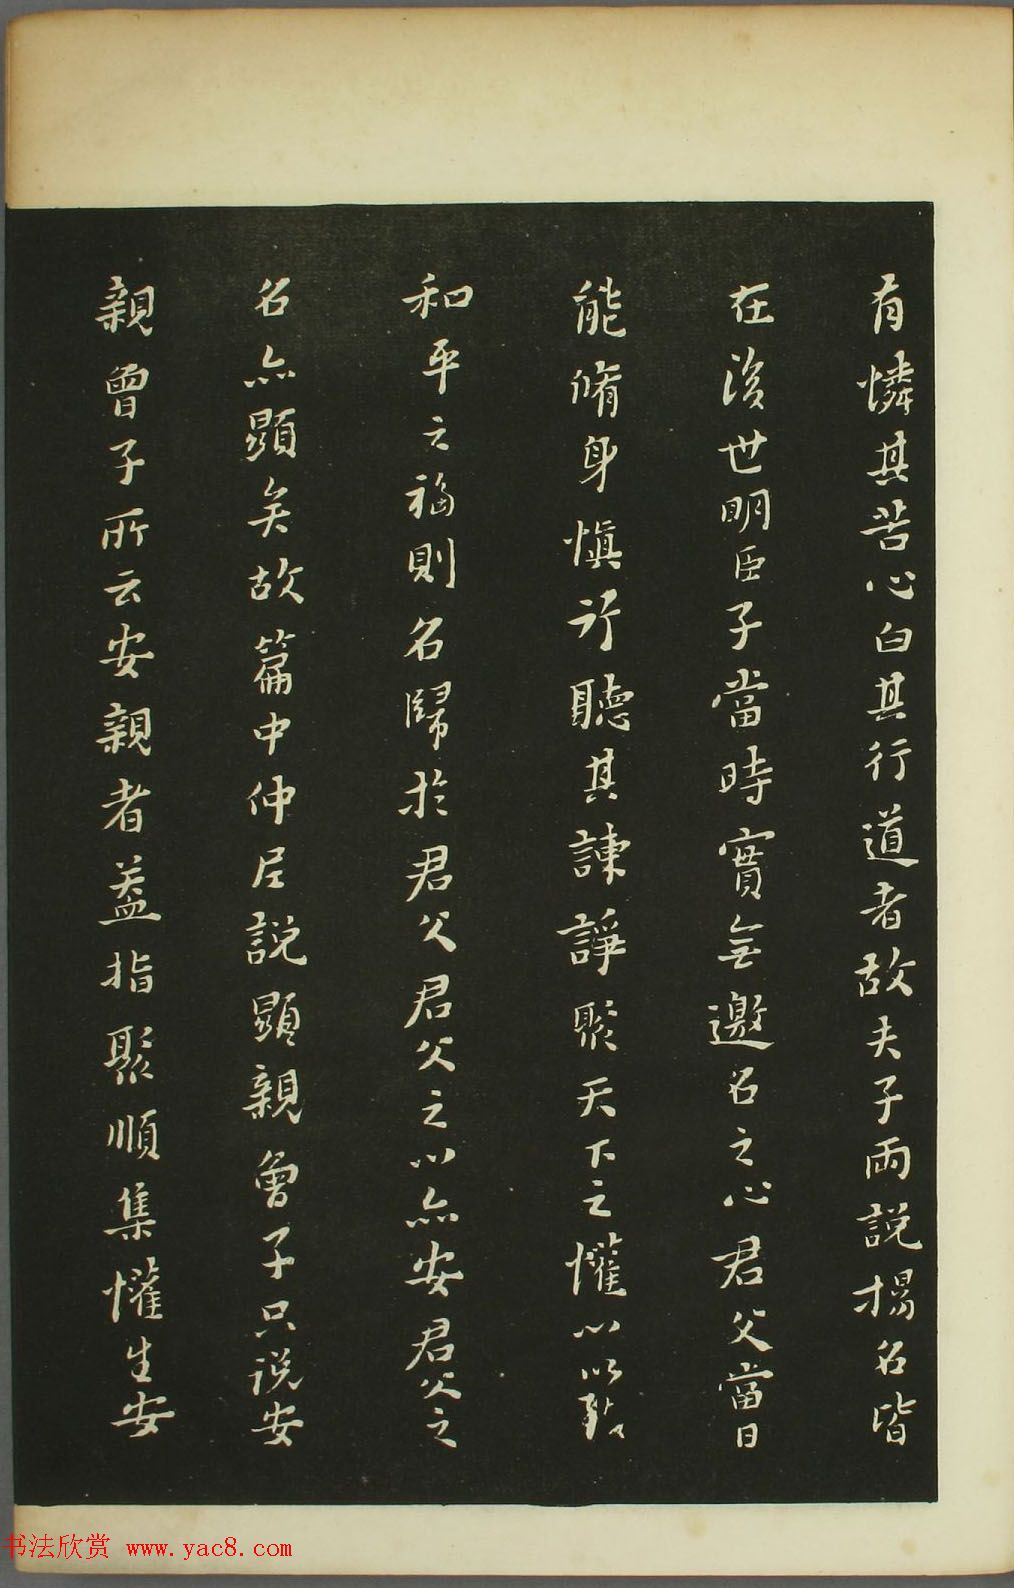 有憐其苦心白其行道者故夫子兩說揚名皆
在後世明臣子當時實無邀名之心君父當日
能脩身慎行聽其諫諍聚天下之懽心以致
和平之福則名歸於君父君父之心亦安君父之
名亦顯矣故篇中仲尼說顯親曾子只說安
親曾子所云安親者盖指聚順集懽生安
书法欣赏 www.yac8.com